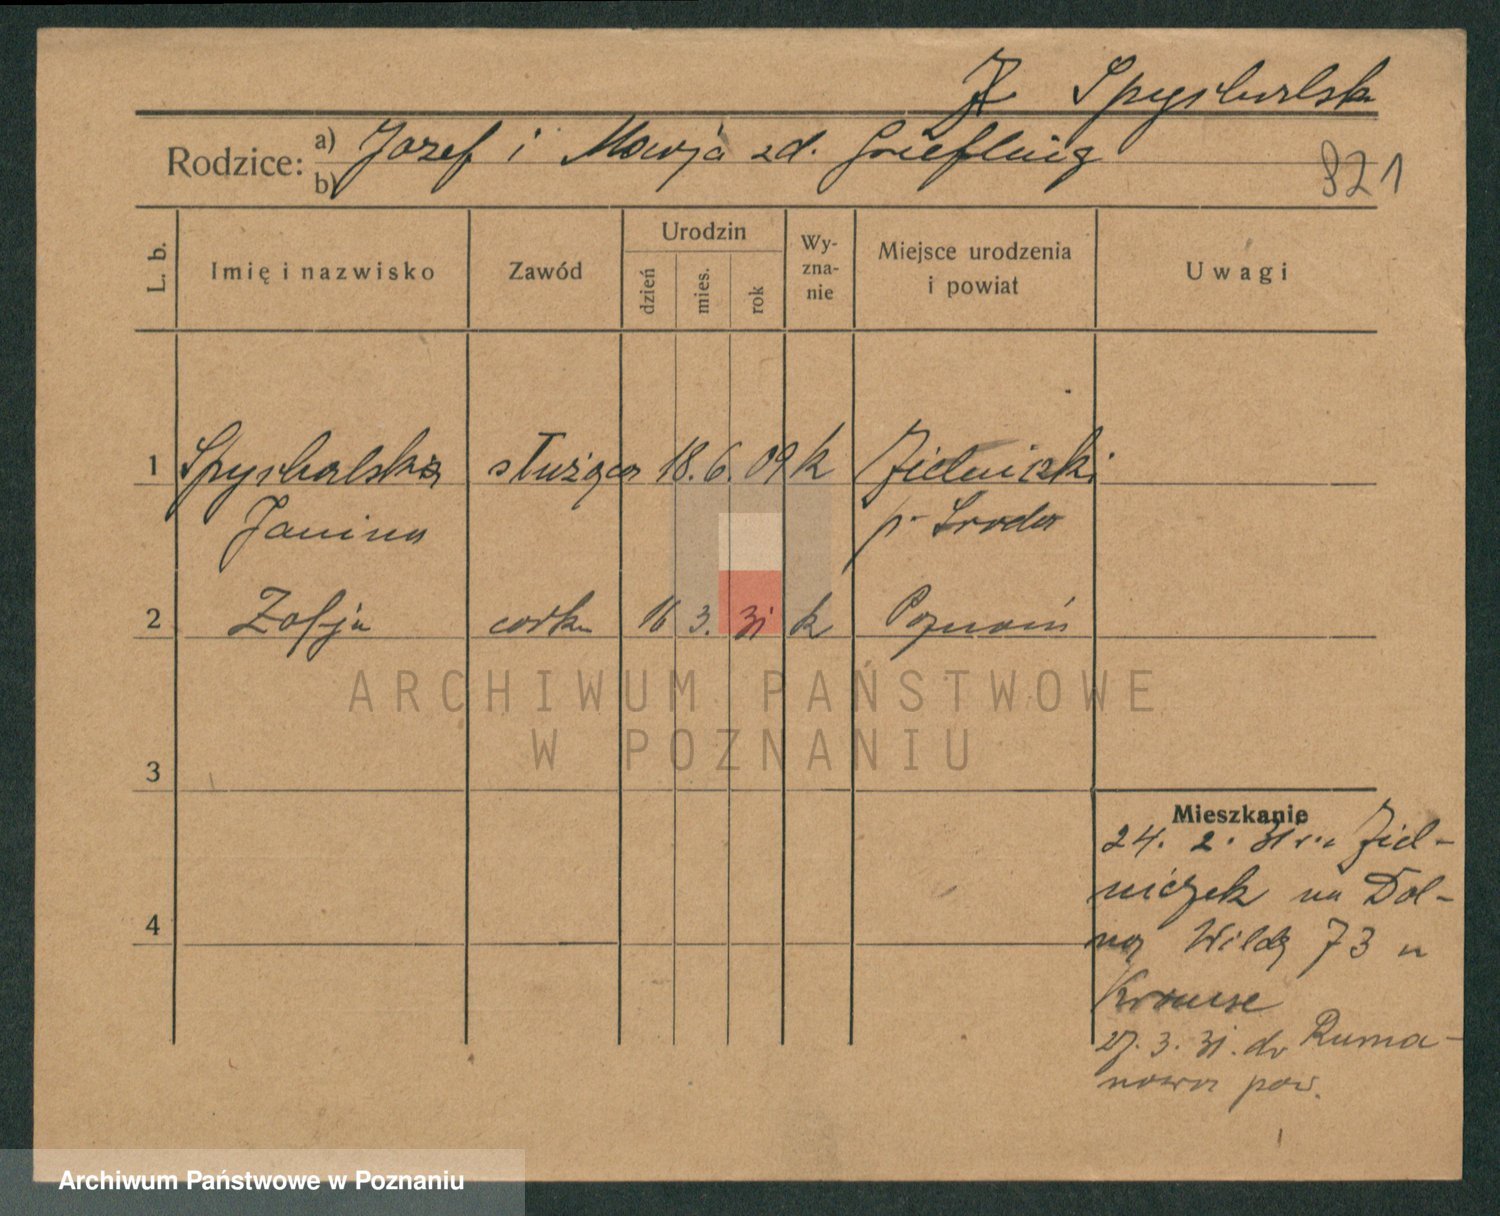 Spychalska
Rodzice: a) Józef i Marja zd.
b)
821
L. b. Imię i nazwisko Zawód Urodzin dzień mies. rok Wy-zna-nie Miejsce urodzenia i powiat Uwagi
1 Spychalska służąca 18. 6. 09 k Zielniczki
Janina p. Środa
2 Zofja córka 16 3. 31 k Poznań
ARCHIWUM PAŃSTWOWE
W POZNANIU
3
Mieszkanie
24. 2. 31 Ziel-
niczek na Dol-
ną Wildę 73 u
4
Krause
27. 3. 31. do Ruma-
nowa pow.
Archiwum Państwowe w Poznaniu